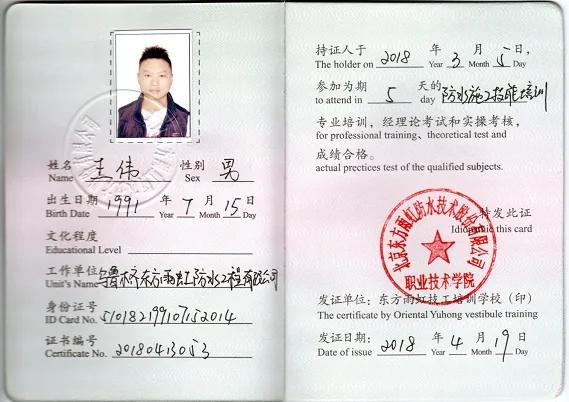 姓名 王伟 性别 男
Name Sex
出生日期 1991 年 7 月 15 日
Birth Date Year Month Day
文化程度
Educational Level
工作单位 乌鲁木齐东方雨虹防水工程有限公司
Unit's Name
身份证号
ID Card No. 510182199107152014
证书编号
Certificate No. 20180413053
持证人于 2018 年 3 月 5 日,
The holder on Year Month Day
参加为期 5 天的 防水施工技能培训
to attend in day
专业培训，经理论考试和实操考核，
for professional training、theoretical test and
成绩合格。
actual prectices test of the qualified subjects.
特发此证
Idiomatic this card
北京东方雨虹防水技术股份有限公司
职业技术学院
发证单位：东方雨虹技工培训学校（印）
The certificate by Oriental Yuhong vestibule training
发证日期： 2018 年 4 月 19 日
Date of issue Year Month Day